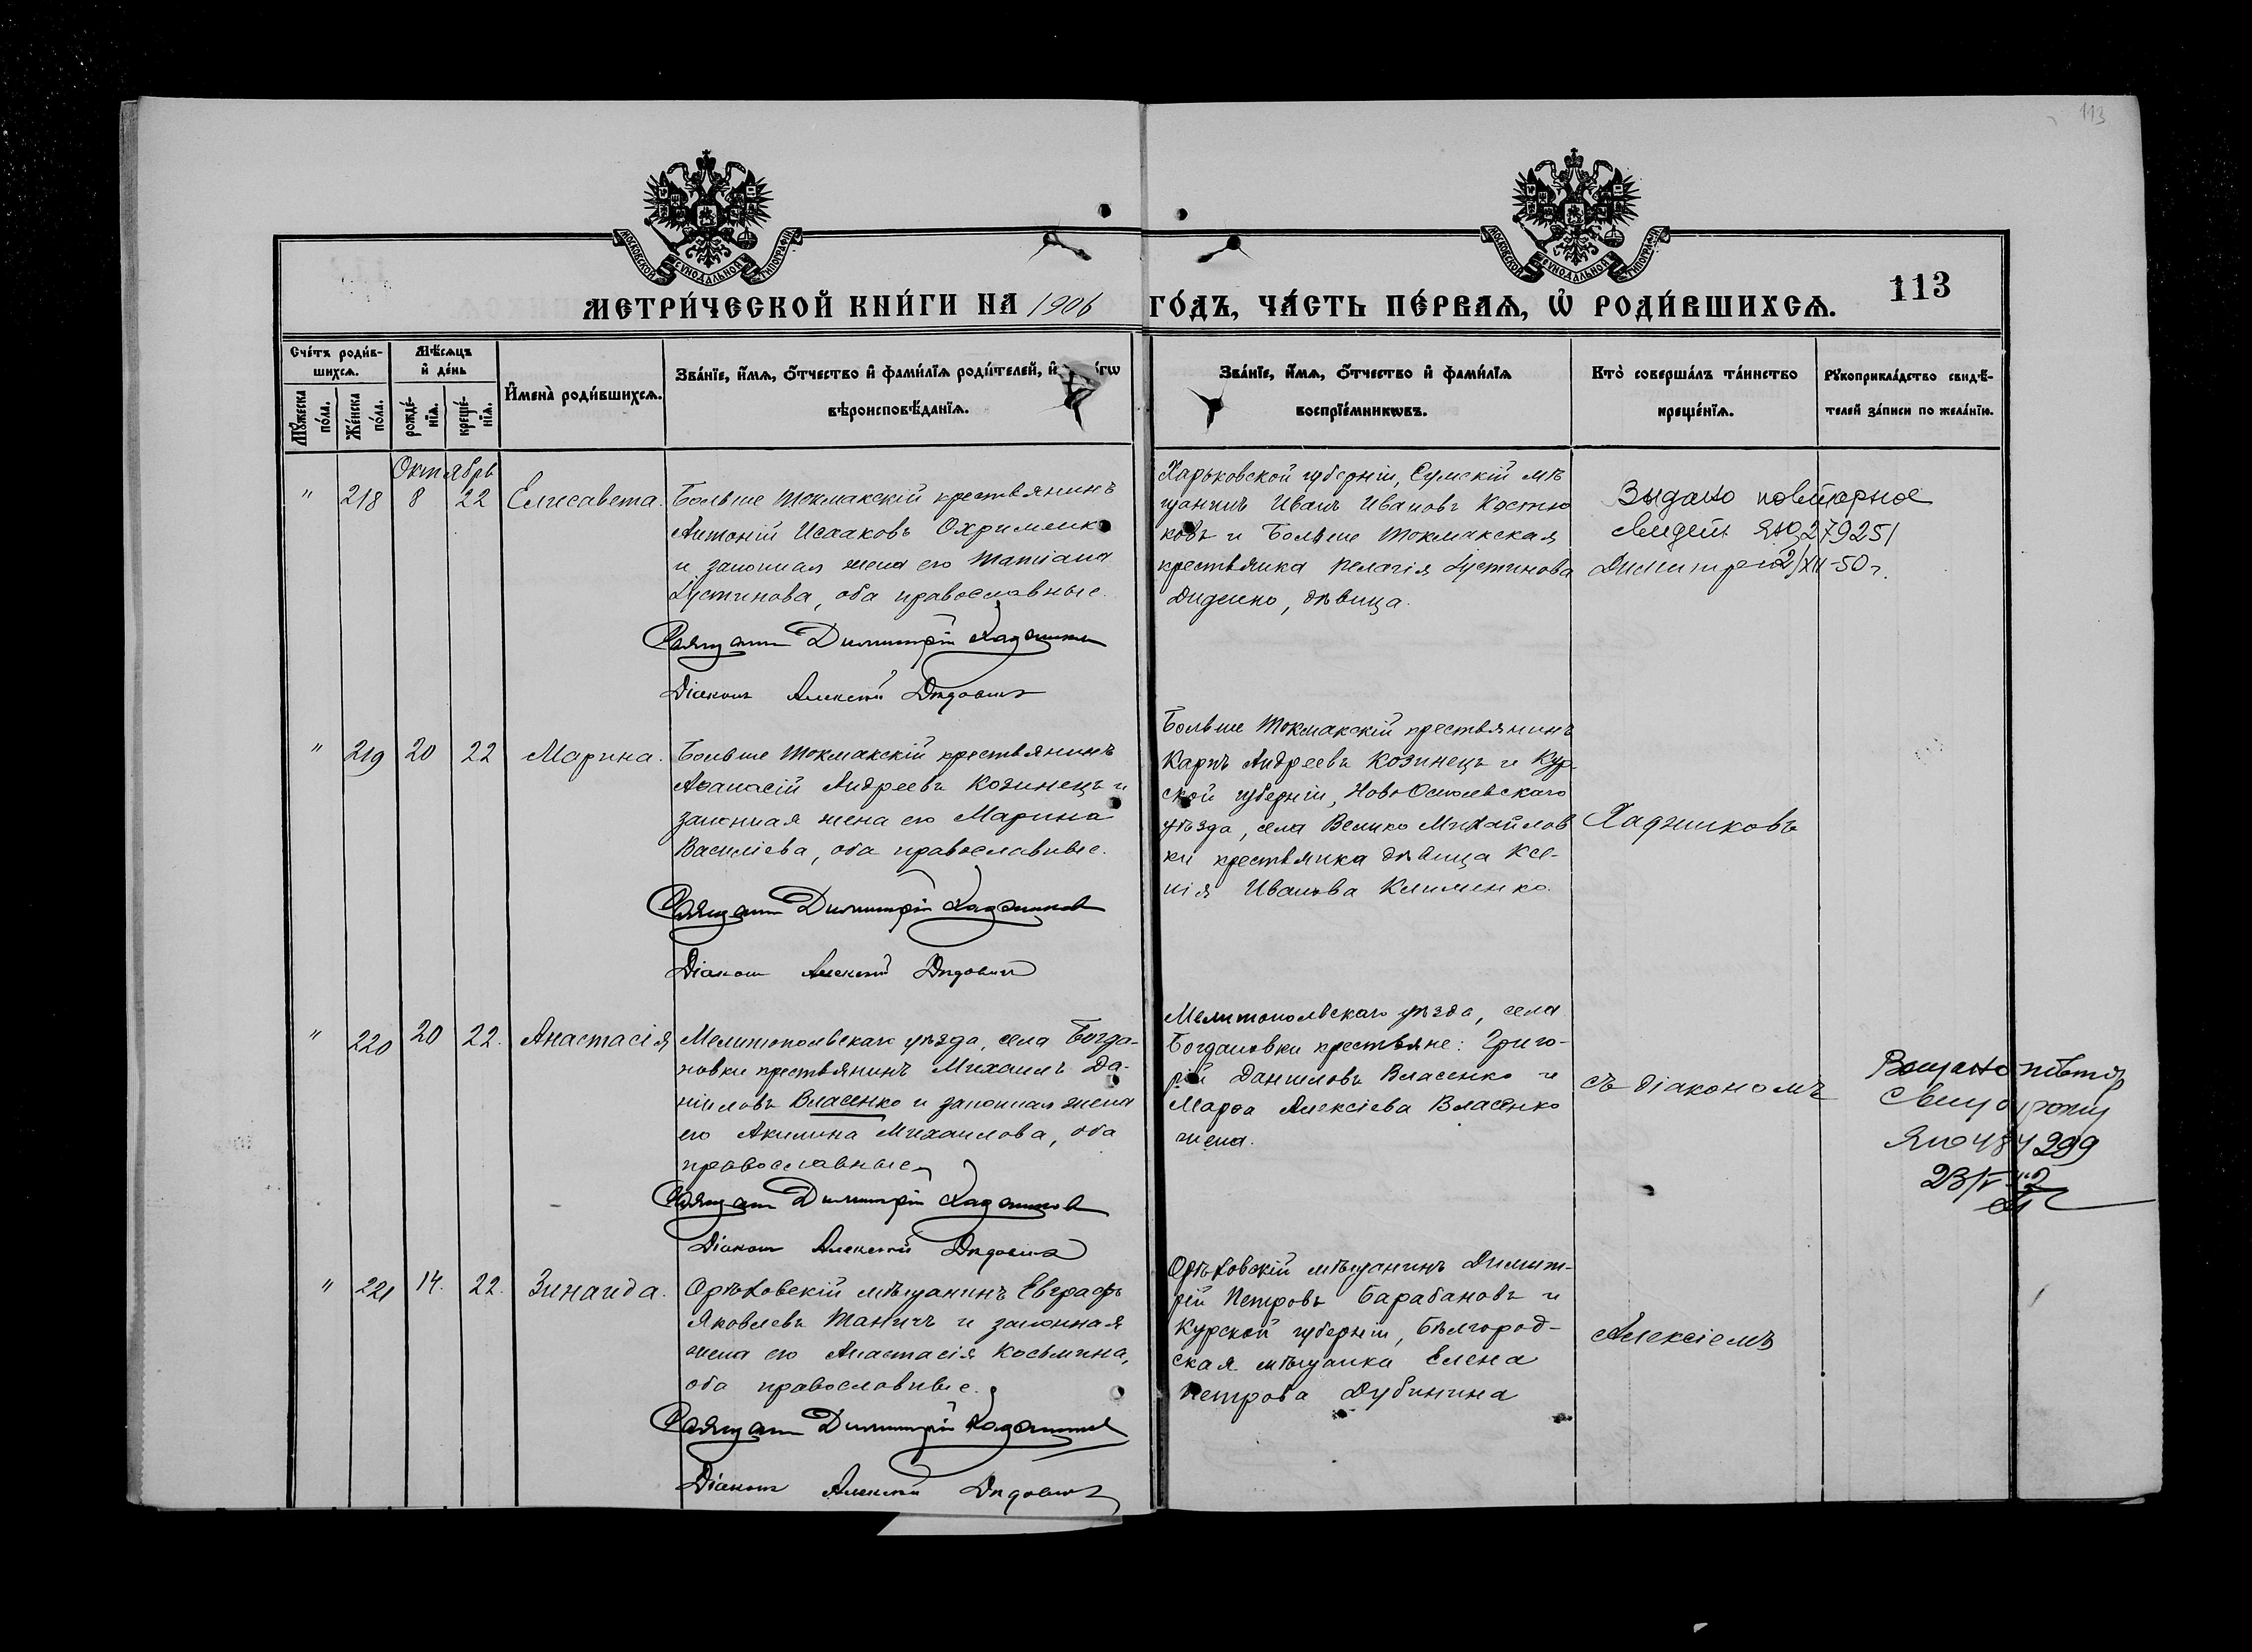 113
МОСКОВСКОЙ СѴНОДАЛЬНОЙ ТИПОГРАФІИ
МОСКОВСКОЙ СѴНОДАЛЬНОЙ ТИПОГРАФІИ
МЕТРИ́ЧЕСКОЙ КНИ́ГИ НА 1906 ГО́ДЪ, ЧА́СТЬ ПЕ́РВАѦ, Ѡ РОДИ́ВШИХСѦ.
113
Сче́тъ роди́в-
шихсѧ.
Мꙋ́жеска
по́ла.
Же́нска
по́ла.
Мѣ́сѧцъ
и҆ де́нь
рожде́-
нїѧ.
креще́-
нїѧ.
И҆мена̀ роди́вшихсѧ.
Зва́нїе, и҆́мѧ, ѻ҆́тчество и҆ фами́лїѧ роди́телей, и҆
вѣроисповѣ́данїѧ.
Зва́нїе, и҆́мѧ, ѻ҆́тчество и҆ фами́лїѧ
воспрїе́мникѡвъ.
Кто̀ соверша́лъ та́инство
креще́нїѧ.
Рꙋкоприкла́дство свидѣ́-
телей за́писи по жела́нїю.
Октябрь
" 218 8 22 Елисавета.
Больше Токмакскій крестьянинъ
Антоній Исааковъ Охрименко
и законная жена его Татіана
Іустинова, оба православные.
Священ Димитрій Хаджиковъ
Діаконъ Алексій Дидовичъ
Харьковской губерніи, Сумскій мѣ
щанинъ Иванъ Ивановъ Костю
ковъ и Больше Токмакская
крестьянка Пелагія Іустинова
Диденко, дѣвица.
Выдано повторное
свидет ЯЮ 279251
2/XII-50 г.
Димитрій
" 219 20 22 Марина.
Больше Токмакскій крестьянинъ
Аѳанасій Андреевъ Козинецъ и
законная жена его Марина
Василіева, оба православные.
Священ Димитрій Хаджиковъ
Діаконъ Алексій Дидовичъ
Больше Токмакскій крестьянинъ
Карпъ Андреевъ Козинецъ и Кур-
ской губерніи, Ново Оскольскаго
уѣзда, села Велико Михайлов
ки крестьянка дѣвица Ксе-
нія Иванова Клименко.
Хаджиковъ
" 220 20 22. Анастасія
Мелитопольскаго уѣзда, села Богда-
новки крестьянинъ Михаилъ Да-
ніиловъ Власенко и законная жена
его Акилина Михаилова, оба
православные
Священ Димитрій Хаджиковъ
Діаконъ Алексій Дидовичъ
Мелитопольскаго уѣзда, села
Богдановки крестьяне: Григо-
рій Даниловъ Власенко и
Марѳа Алексіева Власенко
жена.
съ діакономъ
299
23/V
" 221 14. 22. Зинаида.
Орѣховскій мѣщанинъ Евграфъ
Яковлевъ Таничъ и законная
жена его Анастасія Косьмина,
оба православные.
Священ Димитрій Хаджиковъ
Діаконъ Алексій Дидовичъ
Орѣховскій мѣщанинъ Димит-
рій Петровъ Барабановъ и
Курской губерніи, Бѣлгород-
ская мѣщанка Елена
Петрова Дубинина
Алексіемъ